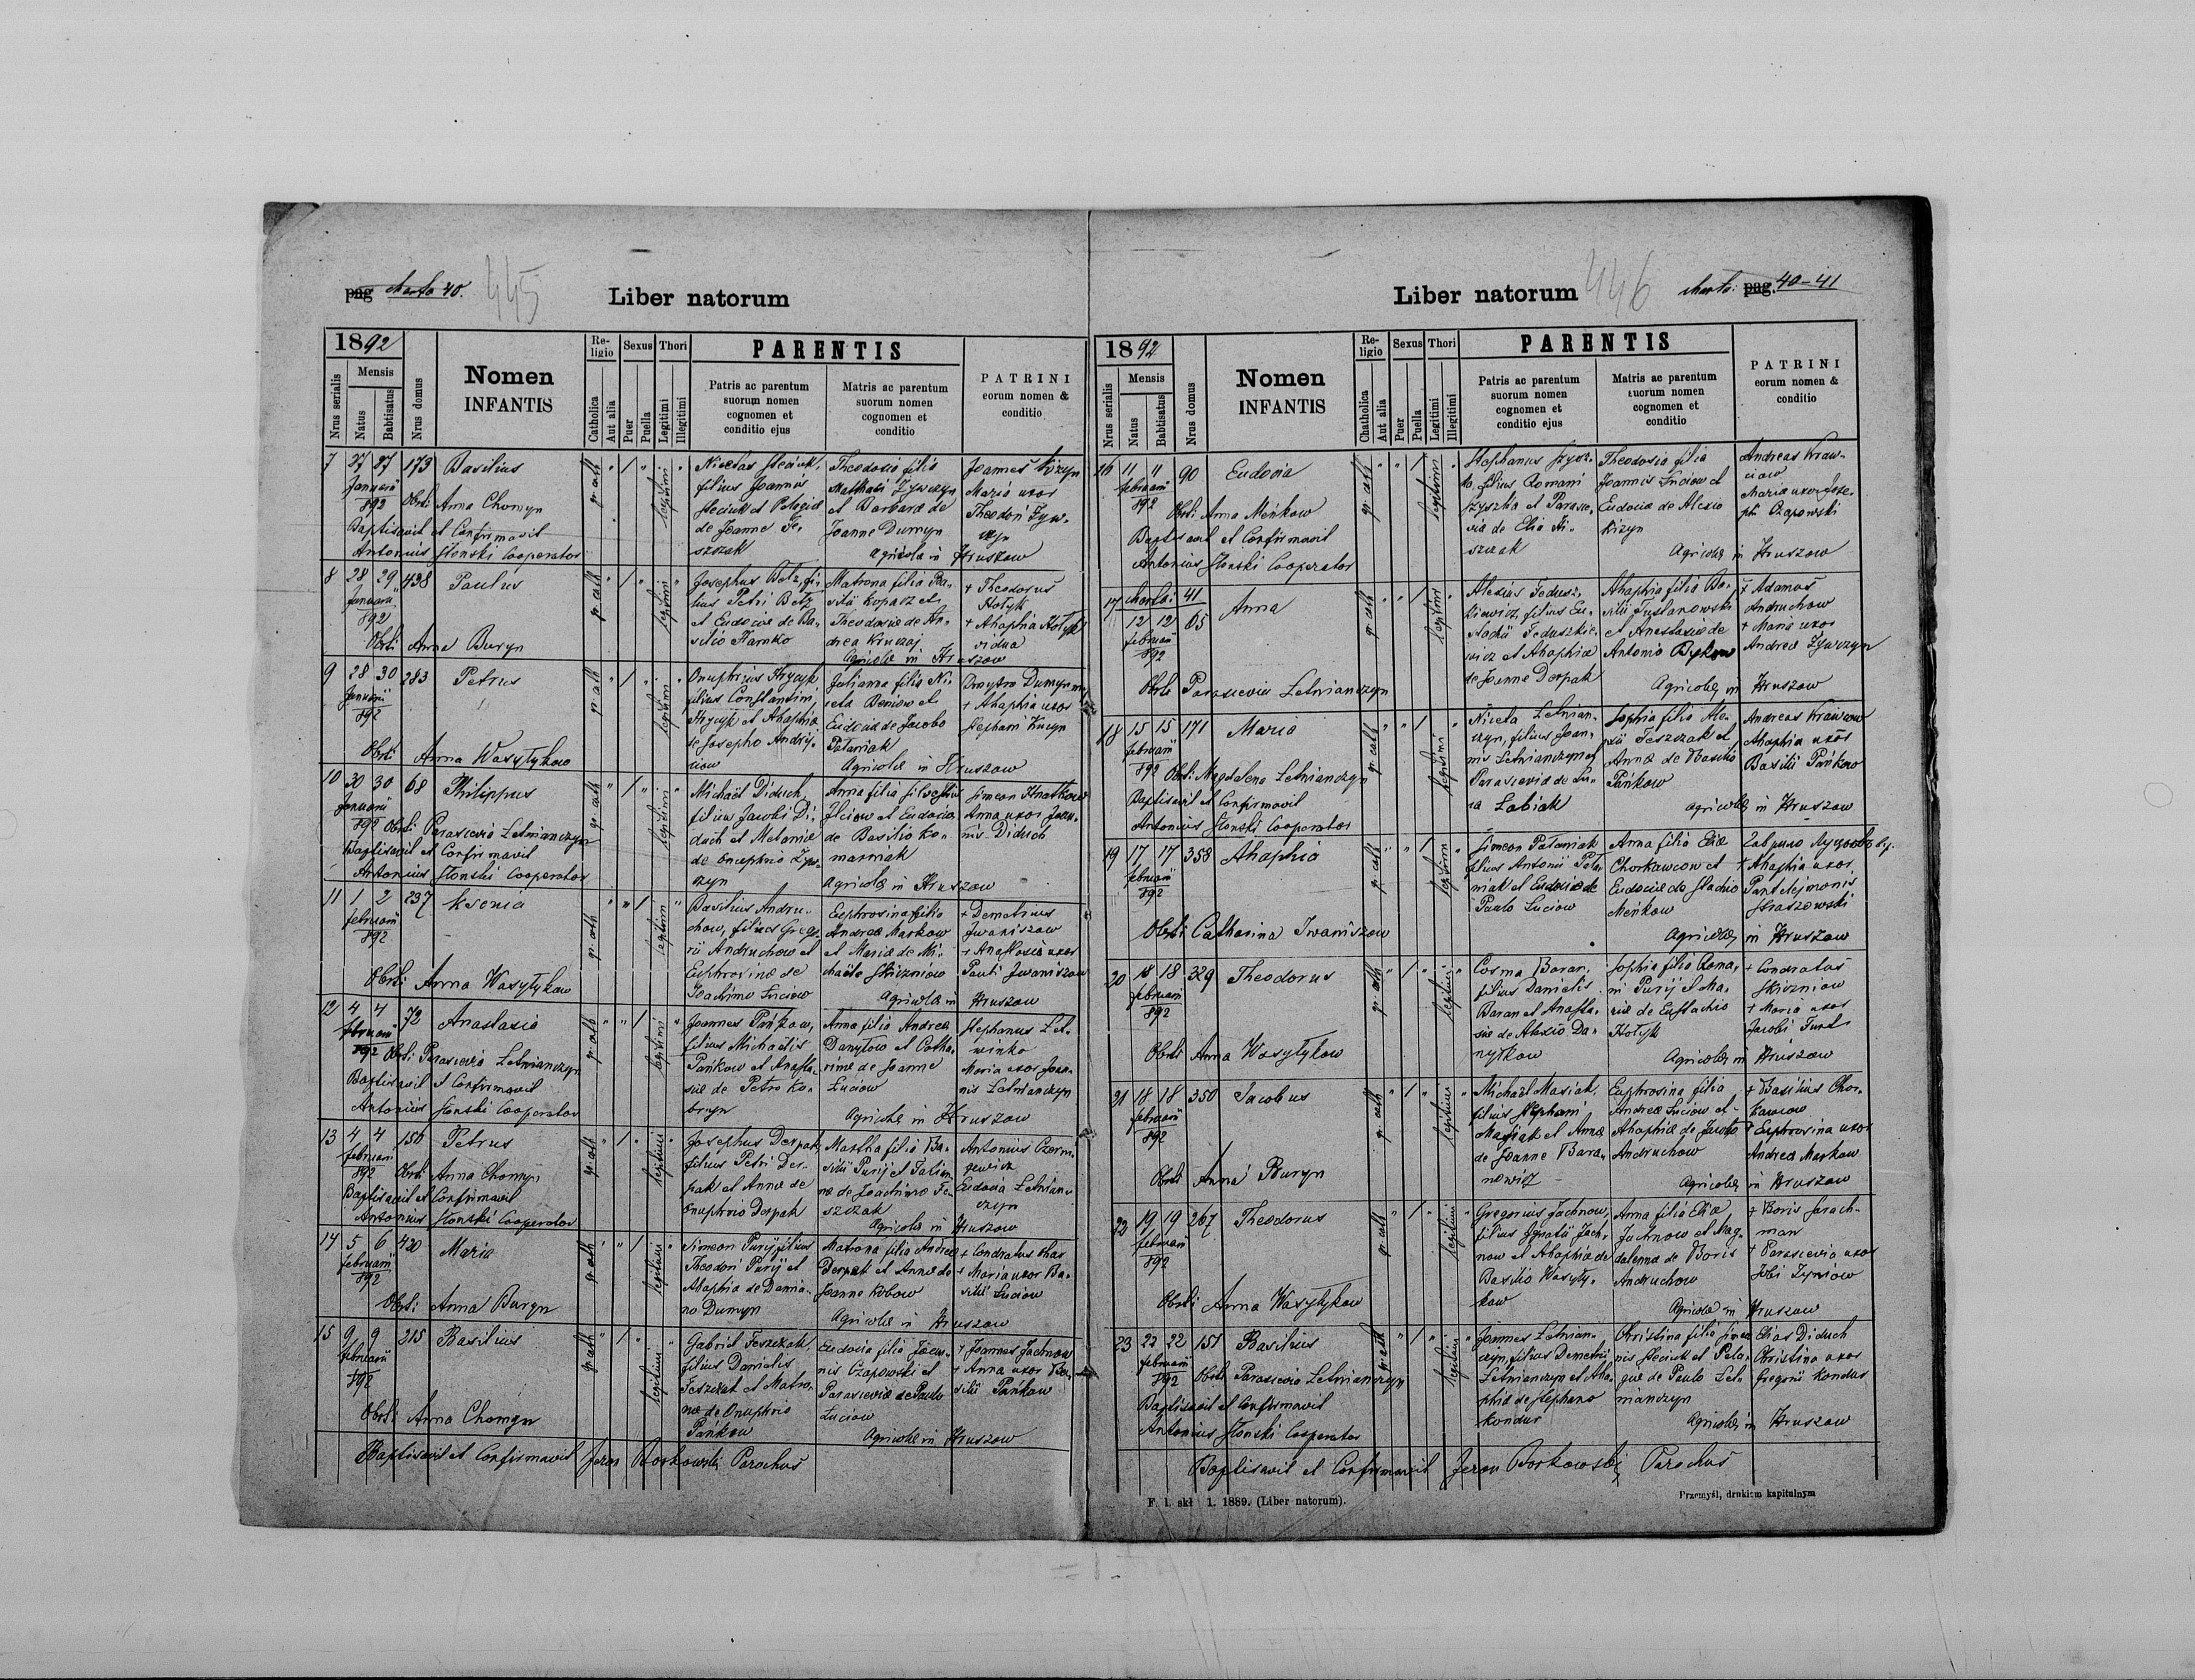 pag charta 40. 445
Liber natorum
1892
Nrus serialis
Mensis
Natus
Babtisatus
Nrus domus
Nomen
INFANTIS
Religio
Catholica
Aut alia
Sexus
Puer
Puella
Thori
Legitimi
Illegitimi
PARENTIS
Patris ac parentum
suorum nomen
cognomen et
conditio ejus
Matris ac parentum
suorum nomen
cognomen et
conditio
PATRINI
eorum nomen &
conditio
7 27 27 173 Basilius
Januarii
892 Obsti Anna Chomyn
Baptisavit et Confirmavit
Antonius Słonski Cooperator
gr. cath " 1 " legitimi "
Nicetas Steciuk,
filius Joannis
Steciuk et Pelagiæ
de Joanne Fe-
szczak
Theodosia filia
Matthæi Zywczyn
et Barbaræ de
Joanne Dumyn
Agricolæ in Hruszow
Joannes Kizyn
Maria uxor
Theodori Zyw-
czyn
8 28 29 438 Paulus
Januarii
892
Obsti Anna Buryn
gr. cath " 1 " legitimi "
Josephus Betz, fi-
lius Petri Betz
et Eudociæ de Ba-
silio Hamko
Matrona filia Ba-
silii Kopacz et
Theodosiæ de An-
drea Kruczaj
Agricolæ in Hruszow
+ Theodorus
Hołyk
+ Ahaphia Hołyk
vidua
9 28 30 283 Petrus
Januarii
892
Obsti Anna Wasyłykow
gr. cath " 1 " legitimi "
Onuphrius Hrycyk
filius Constantini
Hrycyk et Ahaphiæ
de Josepho Andrij-
ciow
Julianna filia Ni-
cetæ Beniow et
Eudociæ de Jacobo
Pataniak
Agricolæ in Hruszow
Dmytro Dumyn
+ Ahaphia uxor
Stephani Kucyn
10 30 30 68 Philippus
Januarii
892 Obsti Parascevia Letnianczyn
Baptisavit et Confirmavit
Antonius Słonski Cooperator
gr. cath " 1 " legitimi "
Michaël Diduch,
filius Jacobi Di-
duch et Melaniæ
de Onuphrio Zyw-
czyn
Anna filia Silvestri
Ilciow et Eudociæ
de Basilio Ko-
marniak
Agricolæ in Hruszow
Simeon Hnatkow
Anna uxor Joan-
nis Diduch
11 1 2 237 Ksenia
februarii
892
Obsti Anna Wasyłykow
gr. cath " " 1 legitimi "
Basilius Andru-
chow, filius Grego-
rii Andruchow et
Euphrosinæ de
Joachimo Luciow
Euphrosina filia
Andreæ Markow
et Mariæ de Mi-
chaële Skiczniow
Agricolæ in Hruszow
+ Demetrius
Iwaniszow
+ Anastasia uxor
Pauli Iwaniszow
12 4 4 72 Anastasia
februarii
892 Obsti Parascevia Letnianczyn
Baptisavit et Confirmavit
Antonius Słonski Cooperator
gr. cath " " 1 legitimi "
Joannes Pańkow,
filius Michaëlis
Pańkow et Anasta-
siæ de Petro Ko-
bryn
Anna filia Andreæ
Danyłow et Catha-
rinæ de Joanne
Luciow
Agricolæ in Hruszow
Stephanus Let-
winko
Maria uxor Joan-
nis Letnianczyn
13 4 4 156 Petrus
februarii
892 Obsti Anna Chomyn
Baptisavit et Confirmavit
Antonius Słonski Cooperator
gr. cath " 1 " legitimi "
Josephus Derpak,
filius Petri Der-
pak et Annæ de
Onuphrio Derpak
Martha filia Ba-
silii Puryj et Tatian-
næ de Joachimo Fe-
szczak
Agricolæ in Hruszow
Antonius Czerni-
gewicz
Eudocia Letnian-
czyn
14 5 6 420 Maria
februarii
892
Obsti Anna Buryn
gr. cath " " 1 legitimi "
Simeon Puryj filius
Theodori Puryj et
Ahaphiæ de Damia-
no Dumyn
Matrona filia Andreæ
Derpak et Annæ de
Joanne Kobow
Agricolæ in Hruszow
+ Condratus Char
+ Maria uxor Ba-
silii Luciow
15 9 9 215 Basilius
februarii
892
Obsti Anna Chomyn
gr. cath " 1 " legitimi "
Gabriel Feszczak,
filius Danielis
Feszczak et Matro-
næ de Onuphrio
Pańkow
Eudocia filia Joan-
nis Czapowski et
Parasceviæ de Paulo
Luciow
Agricolæ in Hruszow
+ Joannes Jachnow
+ Anna uxor Ba-
silii Pańkow
Baptisavit et Confirmavit Jeron Borkowski Parochus
Liber natorum
446 charta: pag. 40-41
1892
Nrus serialis
Mensis
Natus
Babtisatus
Nrus domus
Nomen
INFANTIS
Religio
Chatholica
Aut alia
Sexus
Puer
Puella
Thori
Legitimi
Illegitimi
PARENTIS
Patris ac parentum
suorum nomen
cognomen et
conditio ejus
Matris ac parentum
suorum nomen
cognomen et
conditio
PATRINI
eorum nomen &
conditio
16 11 11 90 Eudocia
februarii
892
Obsti Anna Meńkow
Baptisavit et Confirmavit
Antonius Słonski Cooperator
gr. cath " " 1 legitimi "
Stephanus Szysz-
ka, filius Romani
Szyszka et Parasce-
viæ de Elia Fe-
szczak
Theodosia filia
Joannis Luciow et
Eudociæ de Alexio
Kizyn
Agricolæ in Hruszow
Andreas Kraw-
ciow
Maria uxor Jose-
phi Czapowski
17 charta: 41
12 12 65 Anna
februarii
892
Obsti Parascevia Letnianczyn
gr. cath " " 1 legitimi "
Alexius Fedusz-
kiewicz, filius Eu-
stachii Feduszkie-
wicz et Ahaphiæ
de Joanne Derpak
Ahaphia filia Ba-
silii Tustanowski
et Anastasiæ de
Antonio Bykow
Agricolæ in Hruszow
+ Adamus
Andruchow
+ Maria uxor
Andreæ Zywczyn
18 15 15 171 Maria
februarii
892 Obsti: Magdalena Letnianczyn
Baptisavit et Confirmavit
Antonius Słonski Cooperator
gr. cath " " 1 legitimi "
Niceta Letnian-
czyn, filius Joan-
nis Letnianczyn et
Parasceviæ de Lu-
ca Łabiak
Sophia filia Ale-
xii Feszczak et
Annæ de Basilio
Pańkow
Agricolæ in Hruszow
Andreas Krawcow
Ahaphia uxor
Basilii Pańkow
19 17 17 358 Ahaphia
februarii
892
Obsti Catharina Iwaniszow
gr. cath " " 1 legitimi "
Simeon Pataniak
filius Antonii Pata-
niak et Eudociæ de
Paulo Luciow
Anna filia Eliæ
Chorkawciow et
Eudociæ de Stachio
Meńkow
Agricolæ in Hruszow
+ Ahaphia uxor
Pantelejmonis
Straszowski
20 18 18 329 Theodorus
februarii
892
Obsti Anna Wasyłykow
gr. cath " 1 " legitimi "
Cosma Baran,
filius Danielis
Baran et Anasta-
siæ de Alexio Da-
nyłkow
Sophia filia Roma-
ni Puryj et Ma-
riæ de Eustachio
Hołyk
Agricolæ in Hruszow
+ Condratus
Skiczniow
+ Maria uxor
Jacobi Turl
21 18 18 350 Jacobus
februarii
892
Obsti Anna Buryn
gr. cath " 1 " legitimi "
Michaël Masiak,
filius Stephani
Masiak et Annæ
de Joanne Bara-
newicz
Euphrosina filia
Andreæ Luciow et
Ahaphiæ de Jacobo
Andruchow
Agricolæ in Hruszow
+ Basilius Chor-
kawciow
+ Euphrosina uxor
Andreæ Markow
22 19 19 267 Theodorus
februarii
892
Obsti Anna Wasyłykow
gr. cath " 1 " legitimi "
Gregorius Jachnow,
filius Ignatii Jach-
now et Ahaphiæ de
Basilio Wasyły-
kow
Anna filia Eliæ
Jachnow et Mag-
dalenæ de Boris
Andruchow
Agricolæ in Hruszow
+ Boris Sarach-
man
+ Parascevia uxor
Jobi Zyniow
23 22 22 151 Basilius
februarii
892 Obsti Parascevia Letnianczyn
Baptisavit et Confirmavit
Antonius Słonski Cooperator
gr. cath " 1 " legitimi "
Joannes Letnian-
czyn, filius Demetrii
Letnianczyn et Aha-
phiæ de Stephano
Kondus
Christina filia Simeo-
nis Steciuk et Pela-
giæ de Paulo Let-
nianczyn
Agricolæ in Hruszow
Elias Diduch
Christina uxor
Gregorii Kondus
Baptisavit et Confirmavit Jeron Borkowski Parochus
F. l. skł 1. 1889. (Liber natorum).
Przemyśl, drukiem kapitulnym